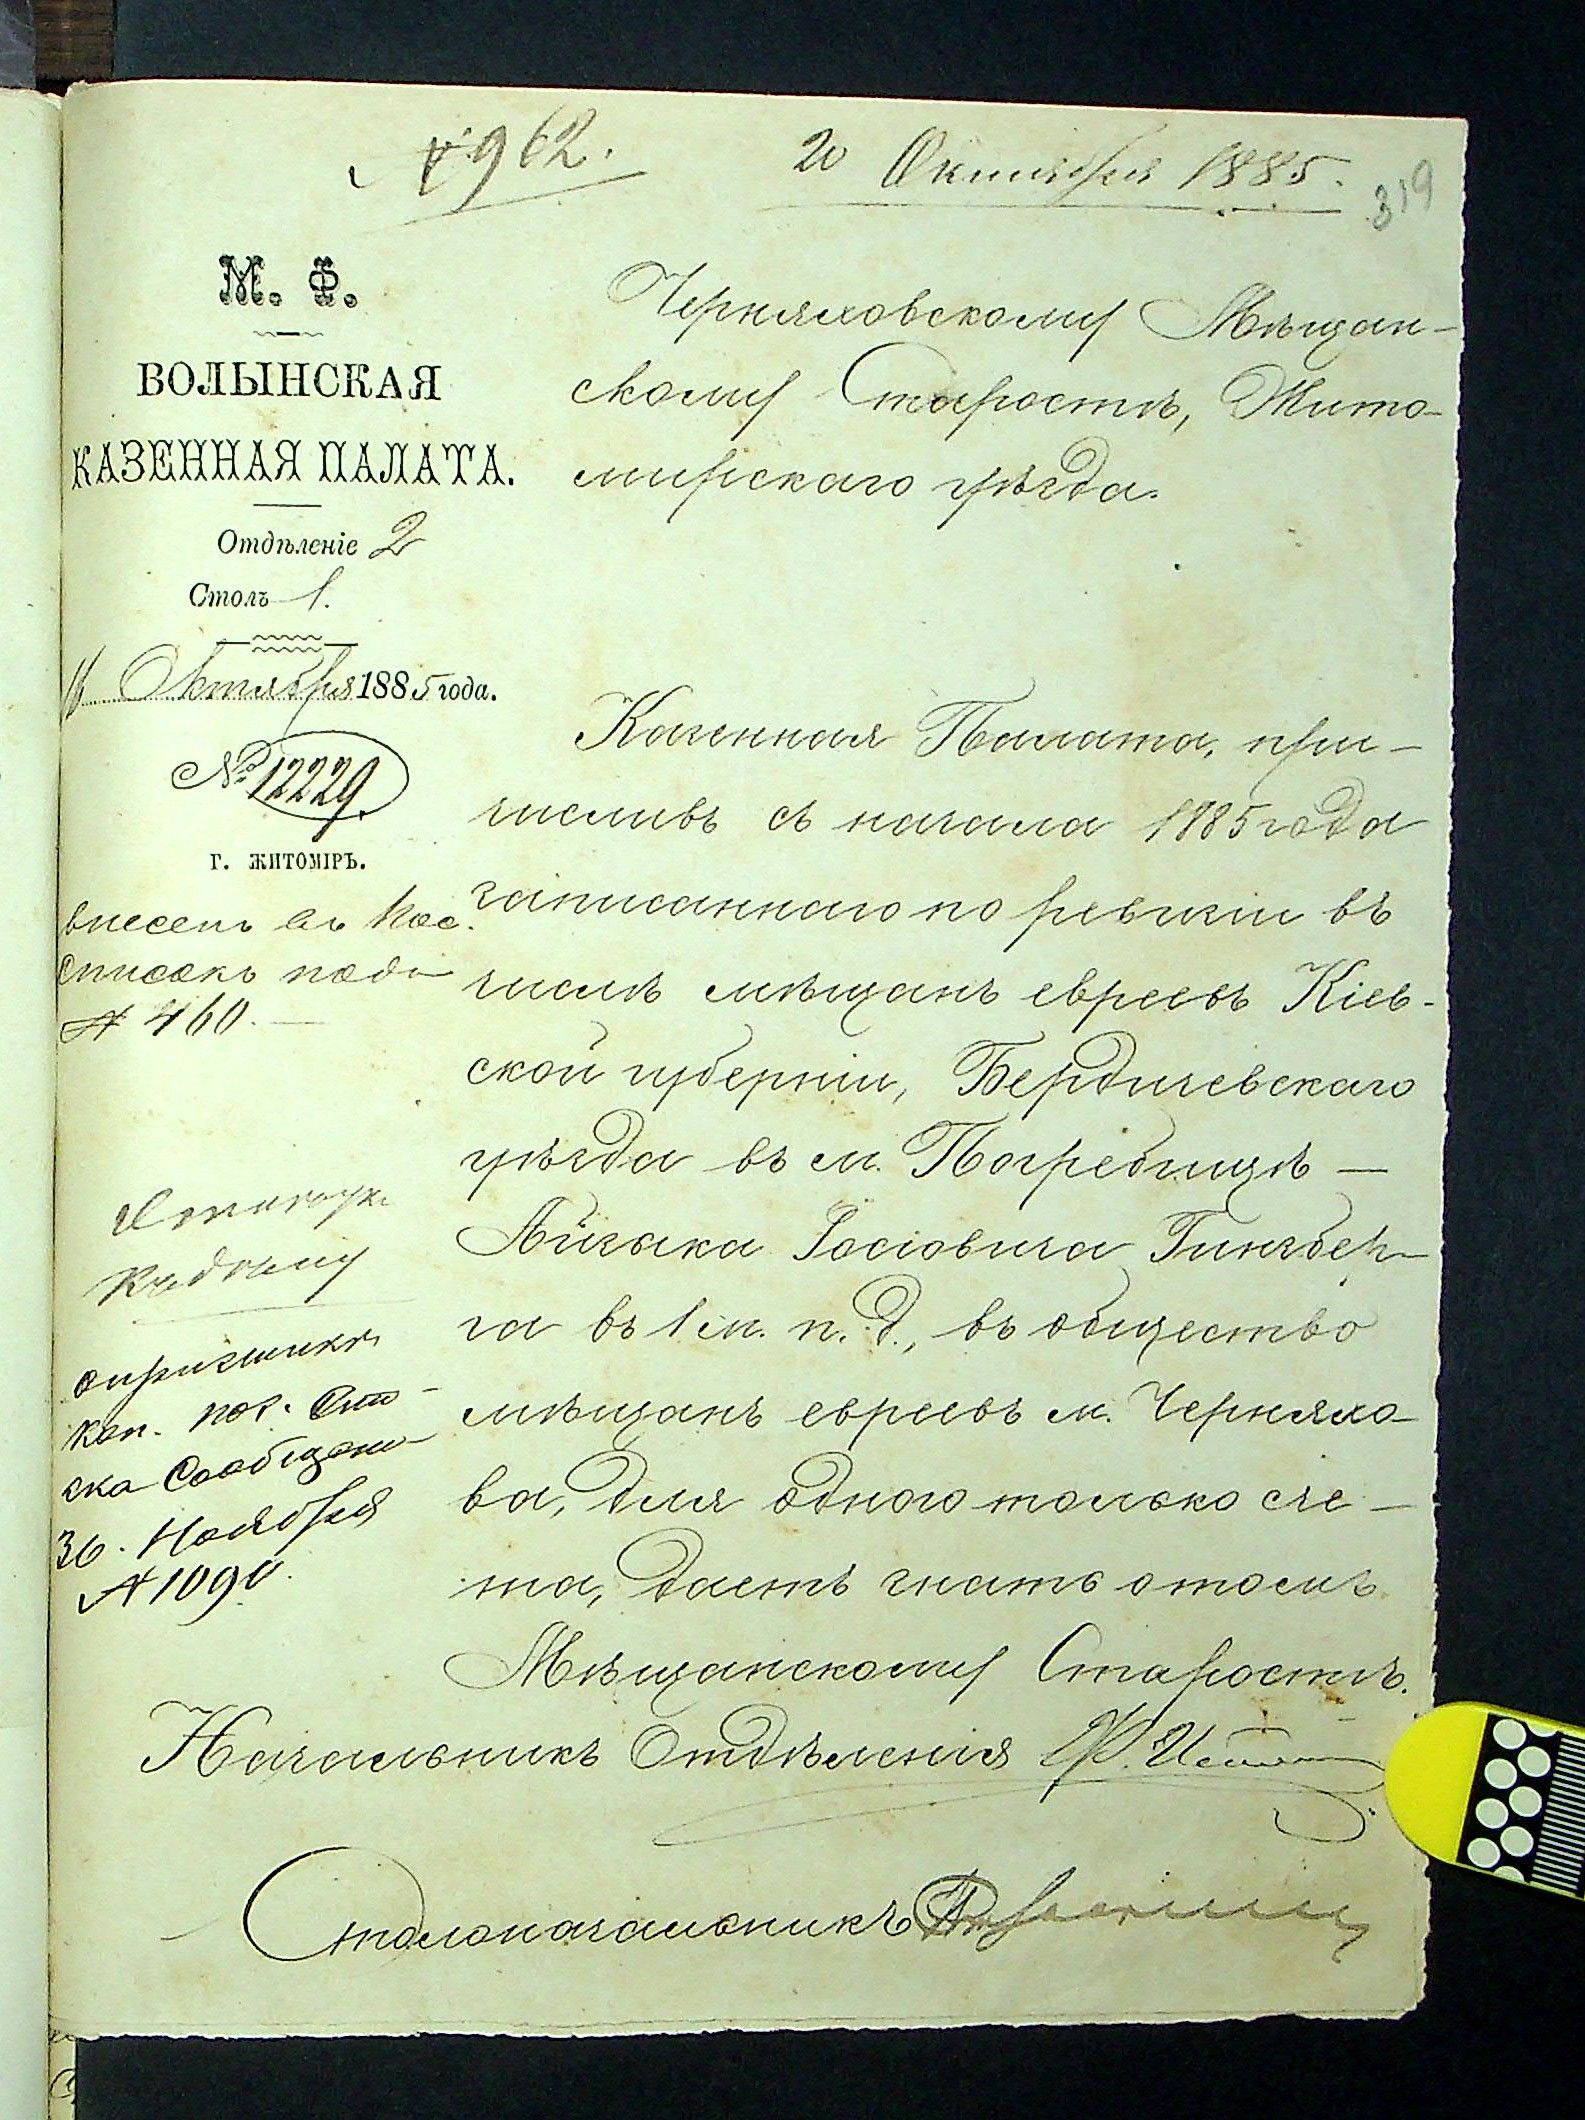 № 962. 20 Октября 1885.
319
М. Ф.
ВОЛЫНСКАЯ
КАЗЕННАЯ ПАЛАТА.
Отдѣленіе 2
Столъ 1.
16 Октября 1885 года.
№ 12229.
Г. ЖИТОМІРЪ.
внесенъ въ пос.
списокъ подъ
№ 460.
Сообщено
30. Ноября
№ 1090.
Черняховскому Мѣщан-
скому Старостѣ, Жито-
мирскаго уѣзда.
Казенная Палата, при-
числивъ съ начала 1885 года
записаннаго по ревизіи въ
числѣ мѣщанъ евреевъ Кіев-
ской губерніи, Бердичевскаго
уѣзда въ м. Погребищѣ —
Айзыка Іосіовича Гинзбер-
га въ 1 м. п. д., въ общество
мѣщанъ евреевъ м. Черняхо-
ва, для одного только сче-
та, даетъ знать о томъ
Мѣщанскому Старостѣ.
Начальникъ Отдѣленія
Столоначальникъ